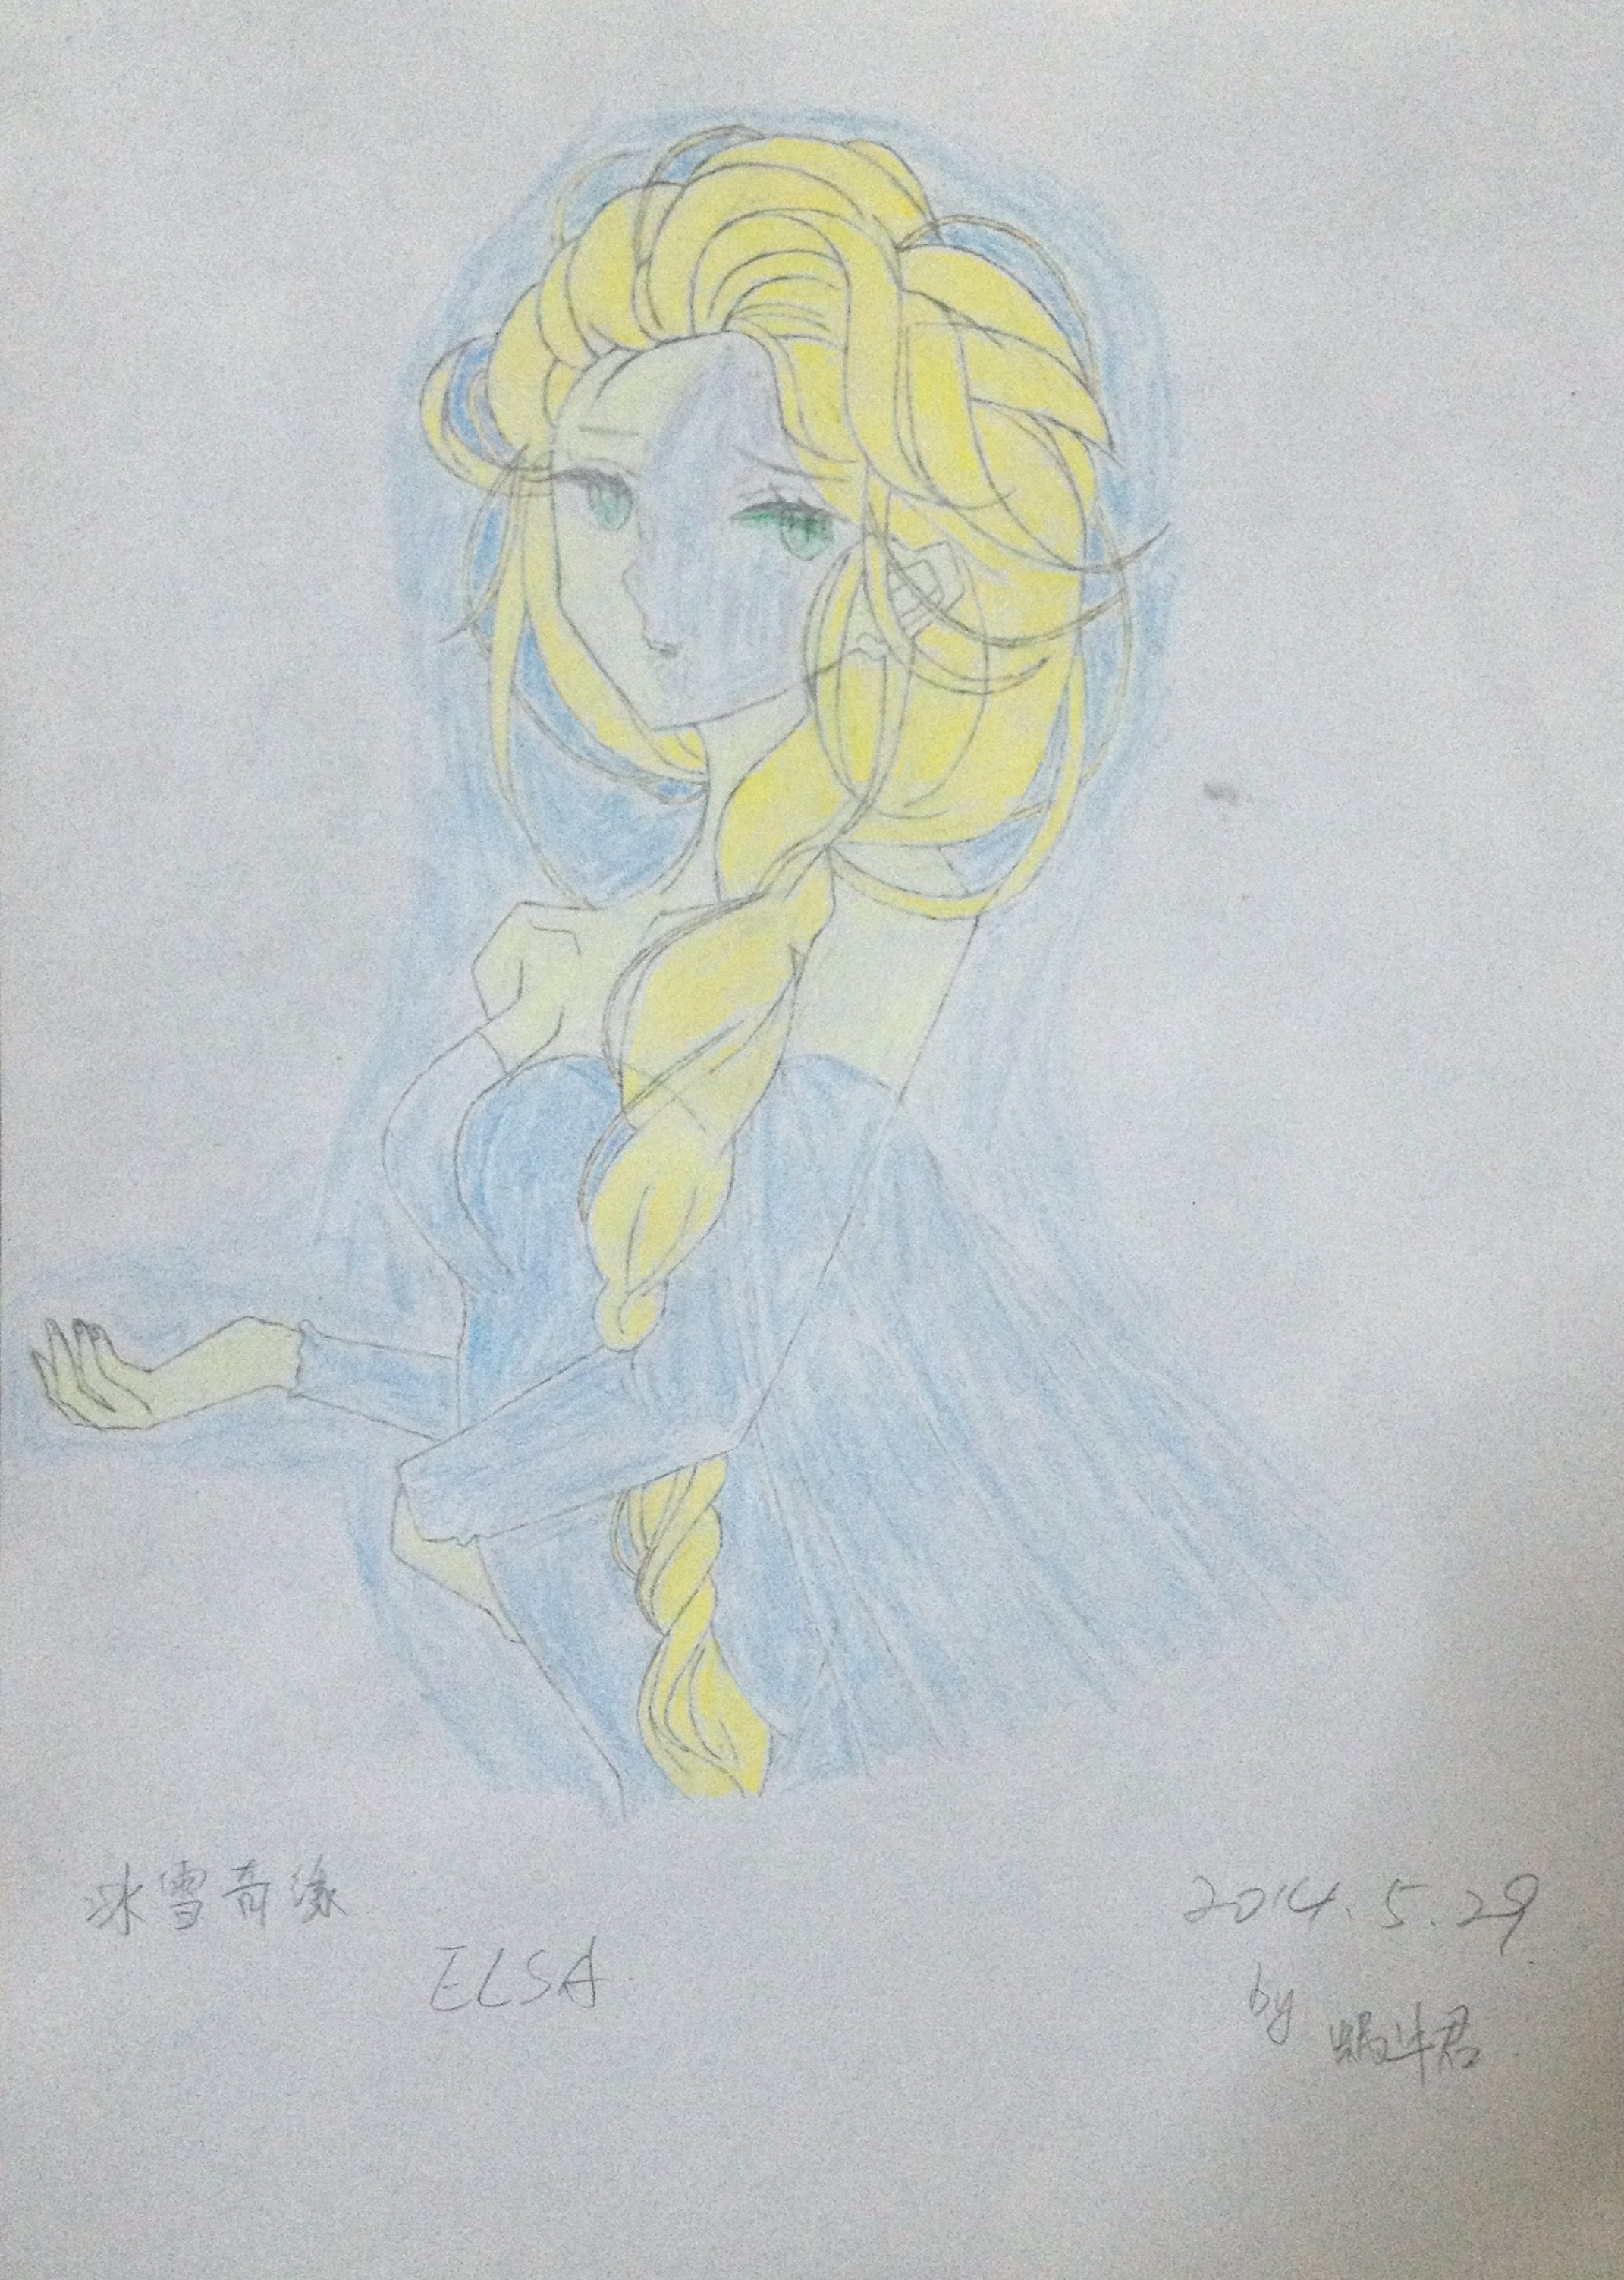 冰雪奇缘
ELSA
2014.5.29
by
蜗牛君